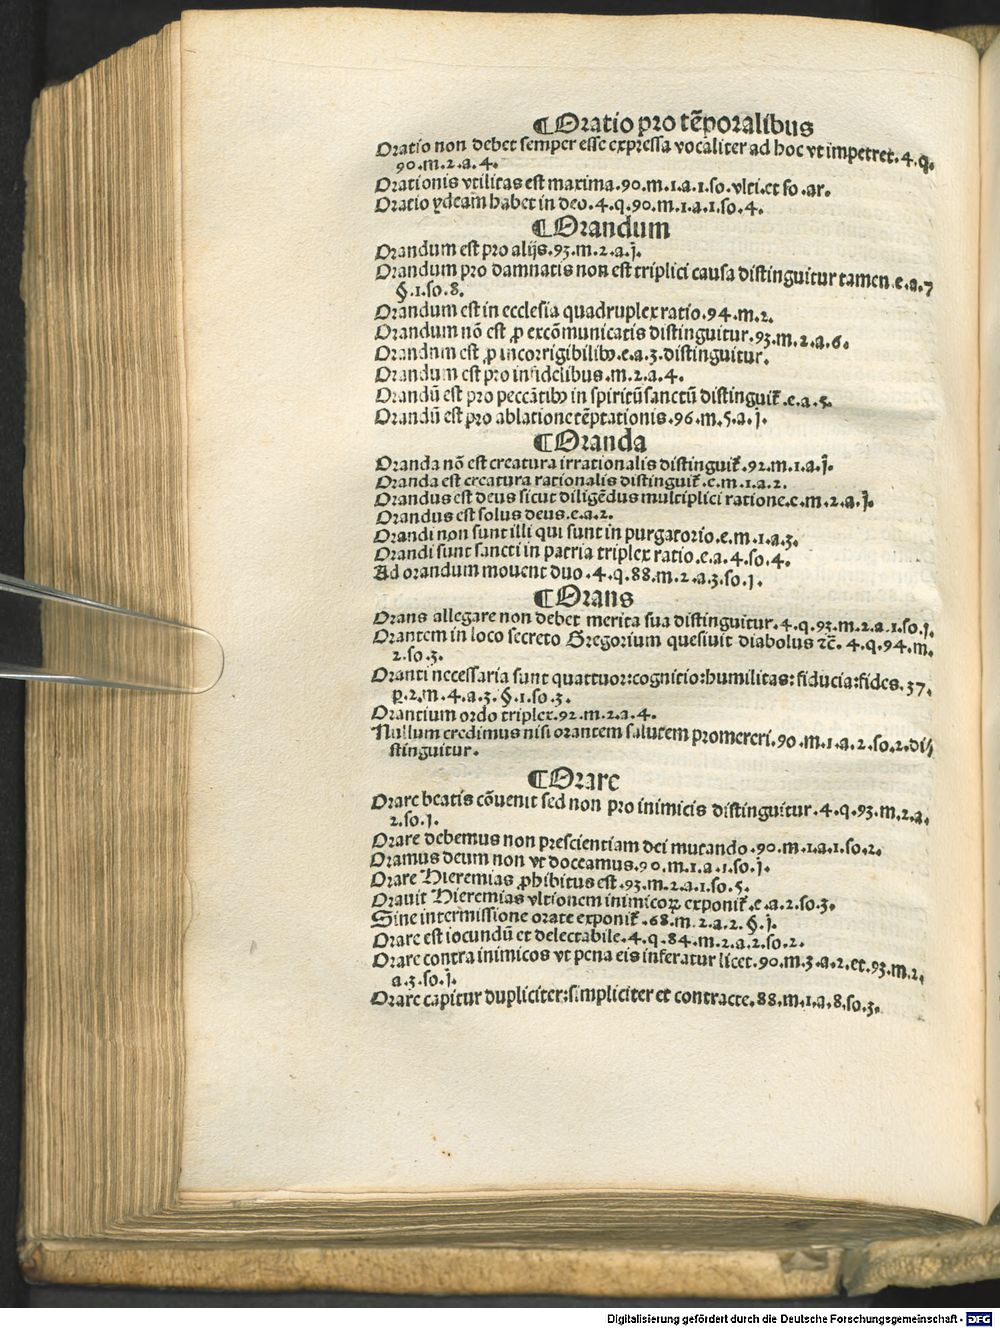 ¶Oratio pro tēporalibus
Oratio non debet semper esse expressa vocaliter ad hoc vt impetret.4.q.
90.m.2.a.4.
Orationis vtilitas est maxima.90.m.1.a.1.so.vlti.et so.ar.
Oratio ydeam habet in deo.4.q.90.m.1.a.1.so.4.
¶Orandum
Orandum est pro alijs.93.m.2.a.j.
Orandum pro damnatis non est triplici causa distinguitur tamen.e.a.7
§.1.so.8.
Orandum est in ecclesia quadruplex ratio.94.m.2.
Orandum nō est ꝓ excōmunicatis distinguitur.93.m.2.a.6.
Orandum est ꝓ incorrigibilibꝰ.e.a.3.distinguitur.
Orandum est pro infidelibus.m.2.a.4.
Orandū est pro peccātibꝰ in spiritū sanctū distinguit̄.e.a.5.
Orandū est pro ablatione tēptationis.96.m.5.a.j.
¶Oranda
Oranda nō est creatura irrationalis distinguit̄.92.m.1.a.j.
Oranda est creatura rationalis distinguit̄.e.m.1.a.2.
Orandus est deus sicut diligēdus multiplici ratione.e.m.2.a.j.
Orandus est solus deus.e.a.2.
Orandi non sunt illi qui sunt in purgatorio.e.m.1.a.3.
Orandi sunt sancti in patria triplex ratio.e.a.4.so.4.
Ad orandum mouent duo.4.q.88.m.2.a.3.so.j.
¶Orans
Orans allegare non debet merita sua distinguitur.4.q.93.m.2.a.1.so.j.
Orantem in loco secreto Gregorium quesiuit diabolus ⁊c̄.4.q.94.m.
2.so.3.
Oranti necessaria sunt quattuor:cognitio:humilitas:fiducia:fides.37.
p.2.m.4.a.3.§.1.so.3.
Orantium ordo triplex.92.m.2.a.4.
Nullum credimus nisi orantem salutem promereri.90.m.1.a.2.so.2.di/
stinguitur.
¶Orare
Orare beatis cōuenit sed non pro inimicis distinguitur.4.q.93.m.2.a.
2.so.j.
Orare debemus non prescientiam dei mutando.90.m.1.a.1.so.2.
Oramus deum non vt doceamus.90.m.1.a.1.so.j.
Orare Hieremias ꝓhibitus est.93.m.2.a.1.so.5.
Orauit Hieremias vltionem inimicoꝝ exponit̄.e.a.2.so.3.
Sine intermissione orate exponit̄.68.m.2.a.2.§.j.
Orare est iocundū et delectabile.4.q.84.m.2.a.2.so.2.
Orare contra inimicos vt pena eis inferatur licet.90.m.3.a.2.et.93.m.2.
a.3.so.j.
Orare capitur dupliciter:simpliciter et contracte.88.m.1.a.8.so.3.
Digitalisierung gefördert durch die Deutsche Forschungsgemeinschaft - DFG